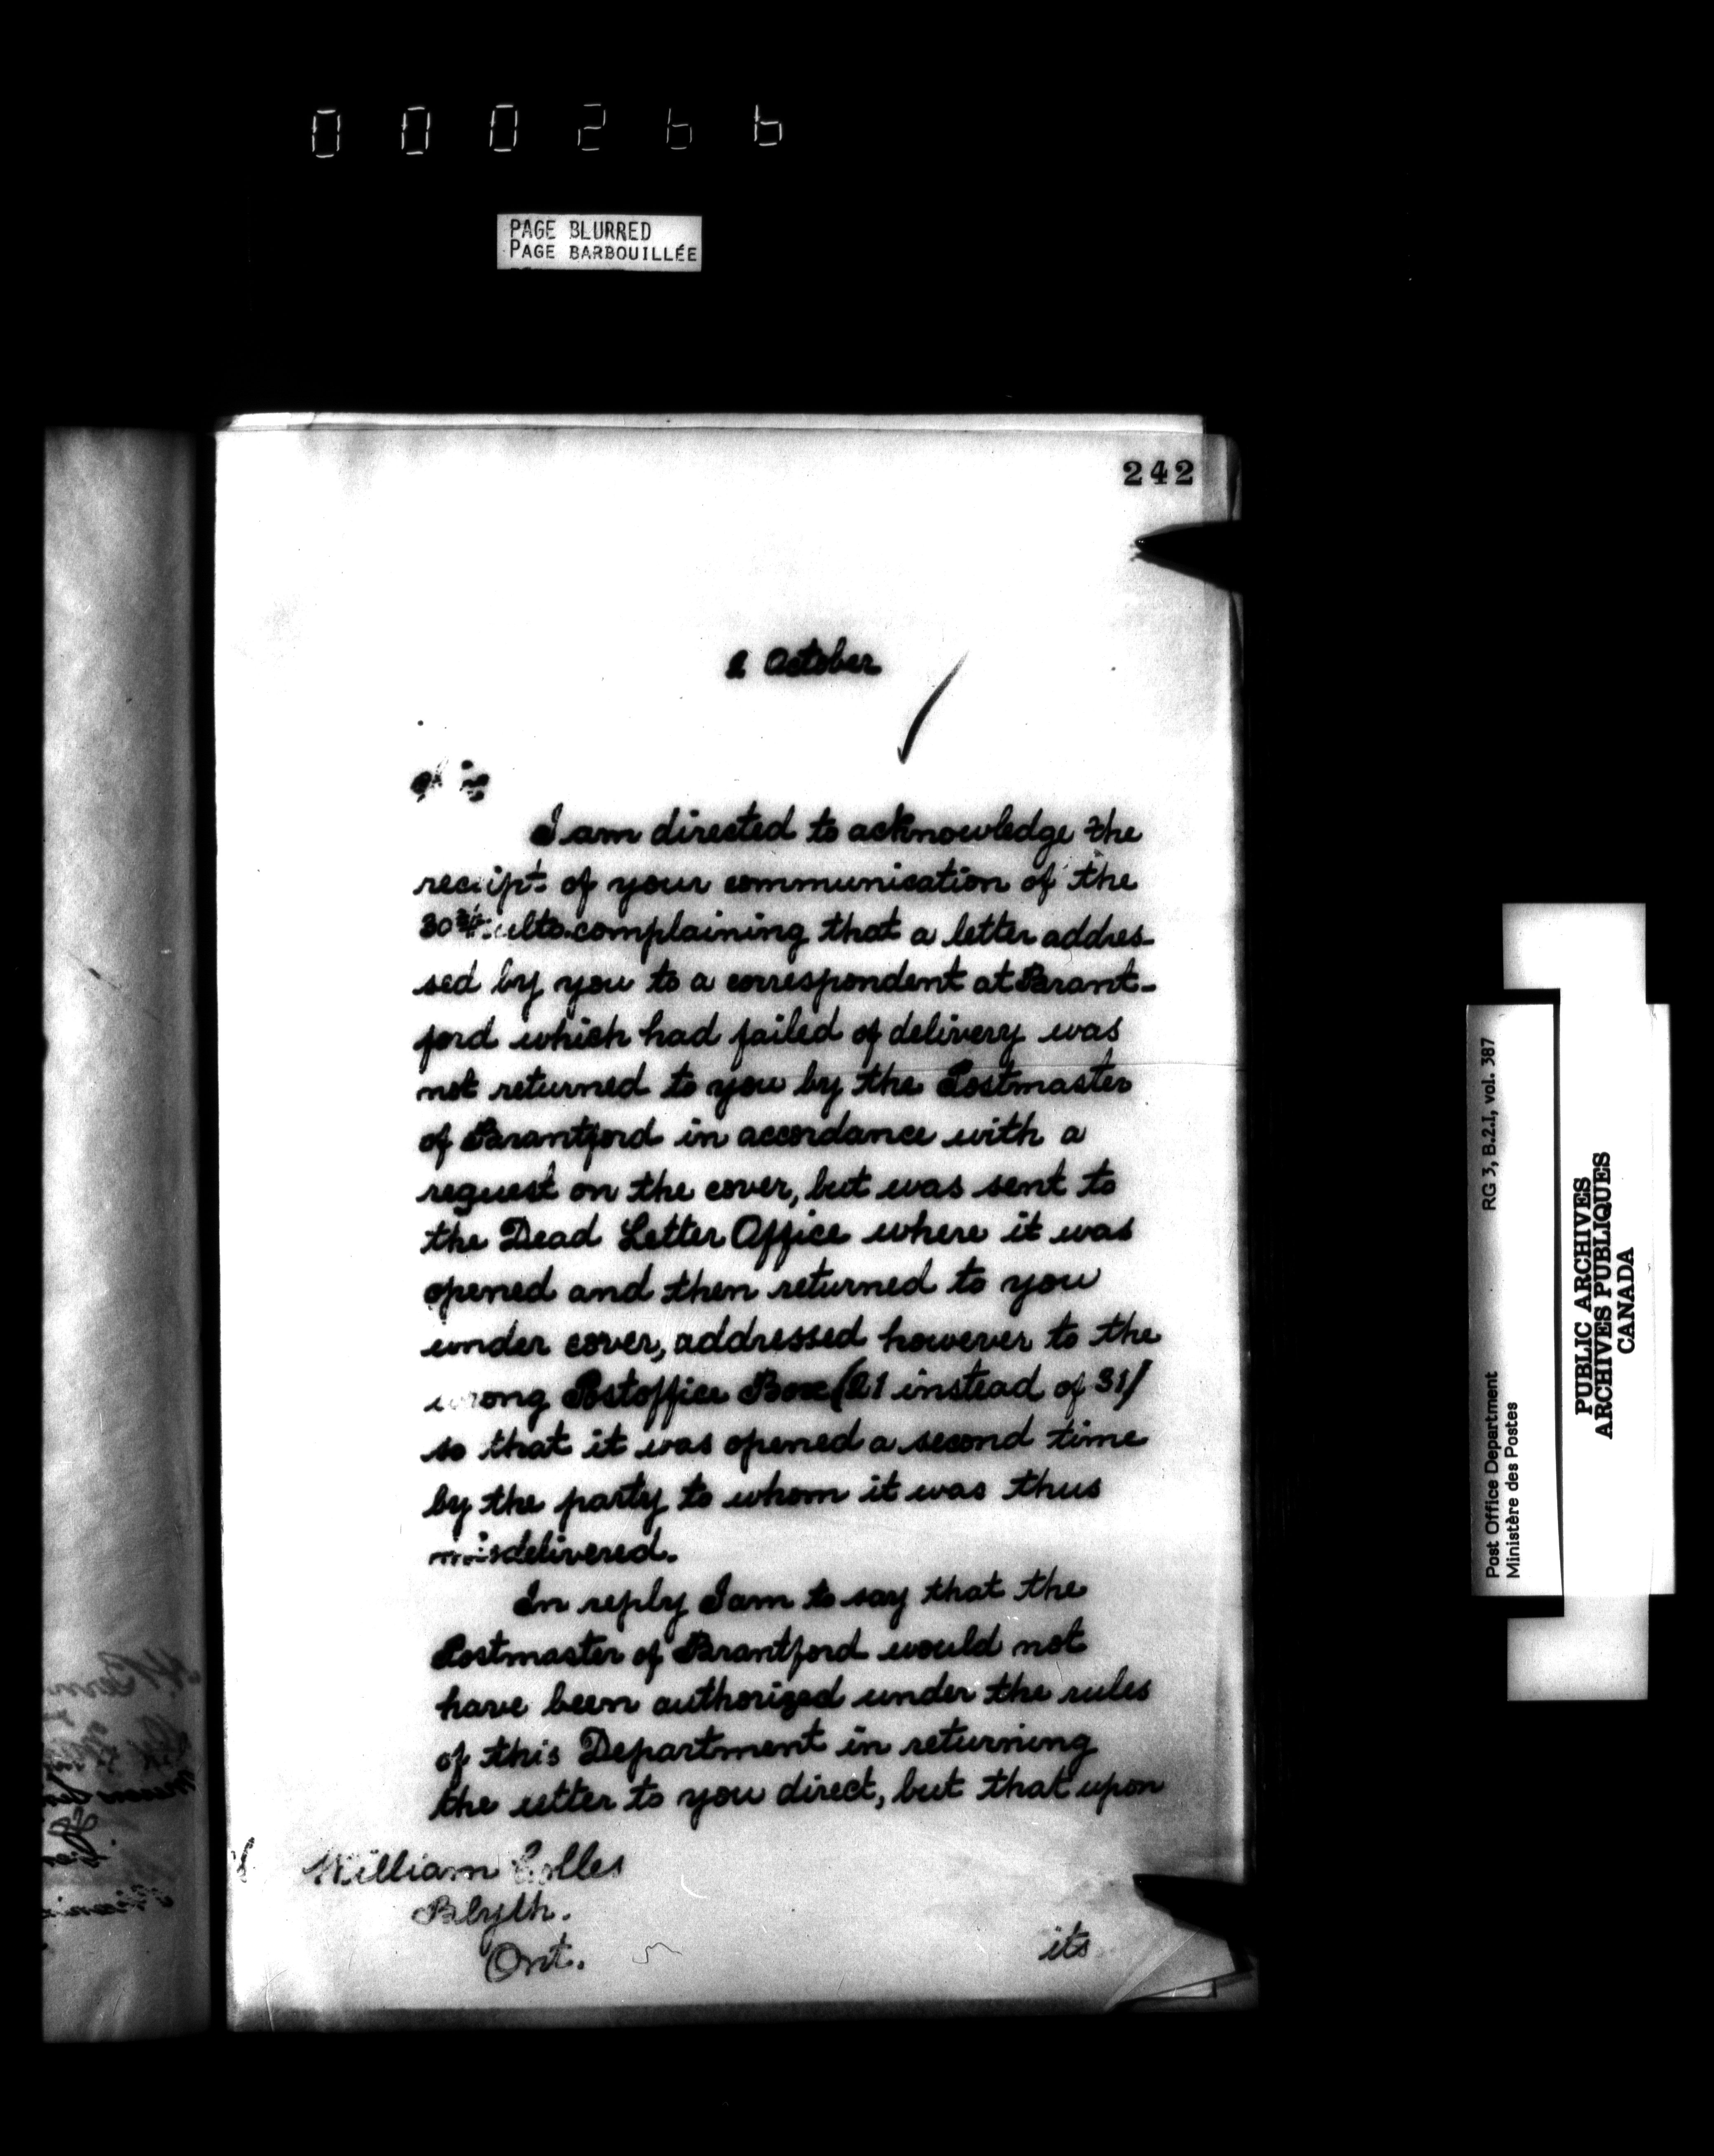 000266
PAGE BLURRED
PAGE BARBOUILLÉE
242
2 October
I am directed to acknowledge the
receipt of your communication of the
30th ulto. complaining that a letter addres-
sed by you to a correspondent at Brant-
ford which had failed of delivery was
not returned to you by the Postmaster
of Brantford in accordance with a
request on the cover, but was sent to
the Dead Letter Office where it was
opened and then returned to you
under cover, addressed however to the
wrong Postoffice Box (21 instead of 31)
so that it was opened a second time
by the party to whom it was thus
misdelivered.
In reply I am to say that the
Postmaster of Brantford would not
have been authorized under the rules
of this Department in returning
the letter to you direct, but that upon
William
Blyth.
Ont.
its
Post Office Department RG 3, B.2.1, vol. 387
Ministère des Postes
PUBLIC ARCHIVES
ARCHIVES PUBLIQUES
CANADA